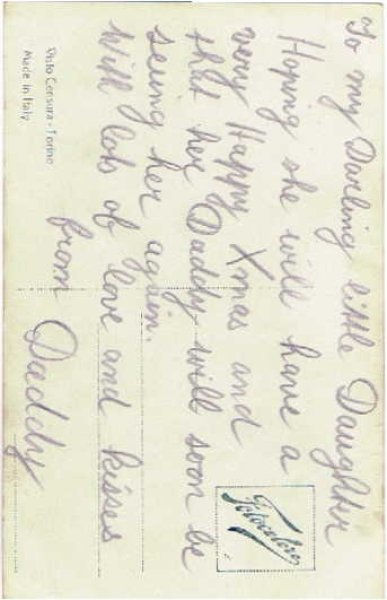 To my Darling little Daughter
Hoping she will have a
very Happy Xmas and
that her Daddy will soon be
seeing her again.
With lots of love and kisses
from Daddy
Fotocelere
Visto Censura - Torino
Made in Italy